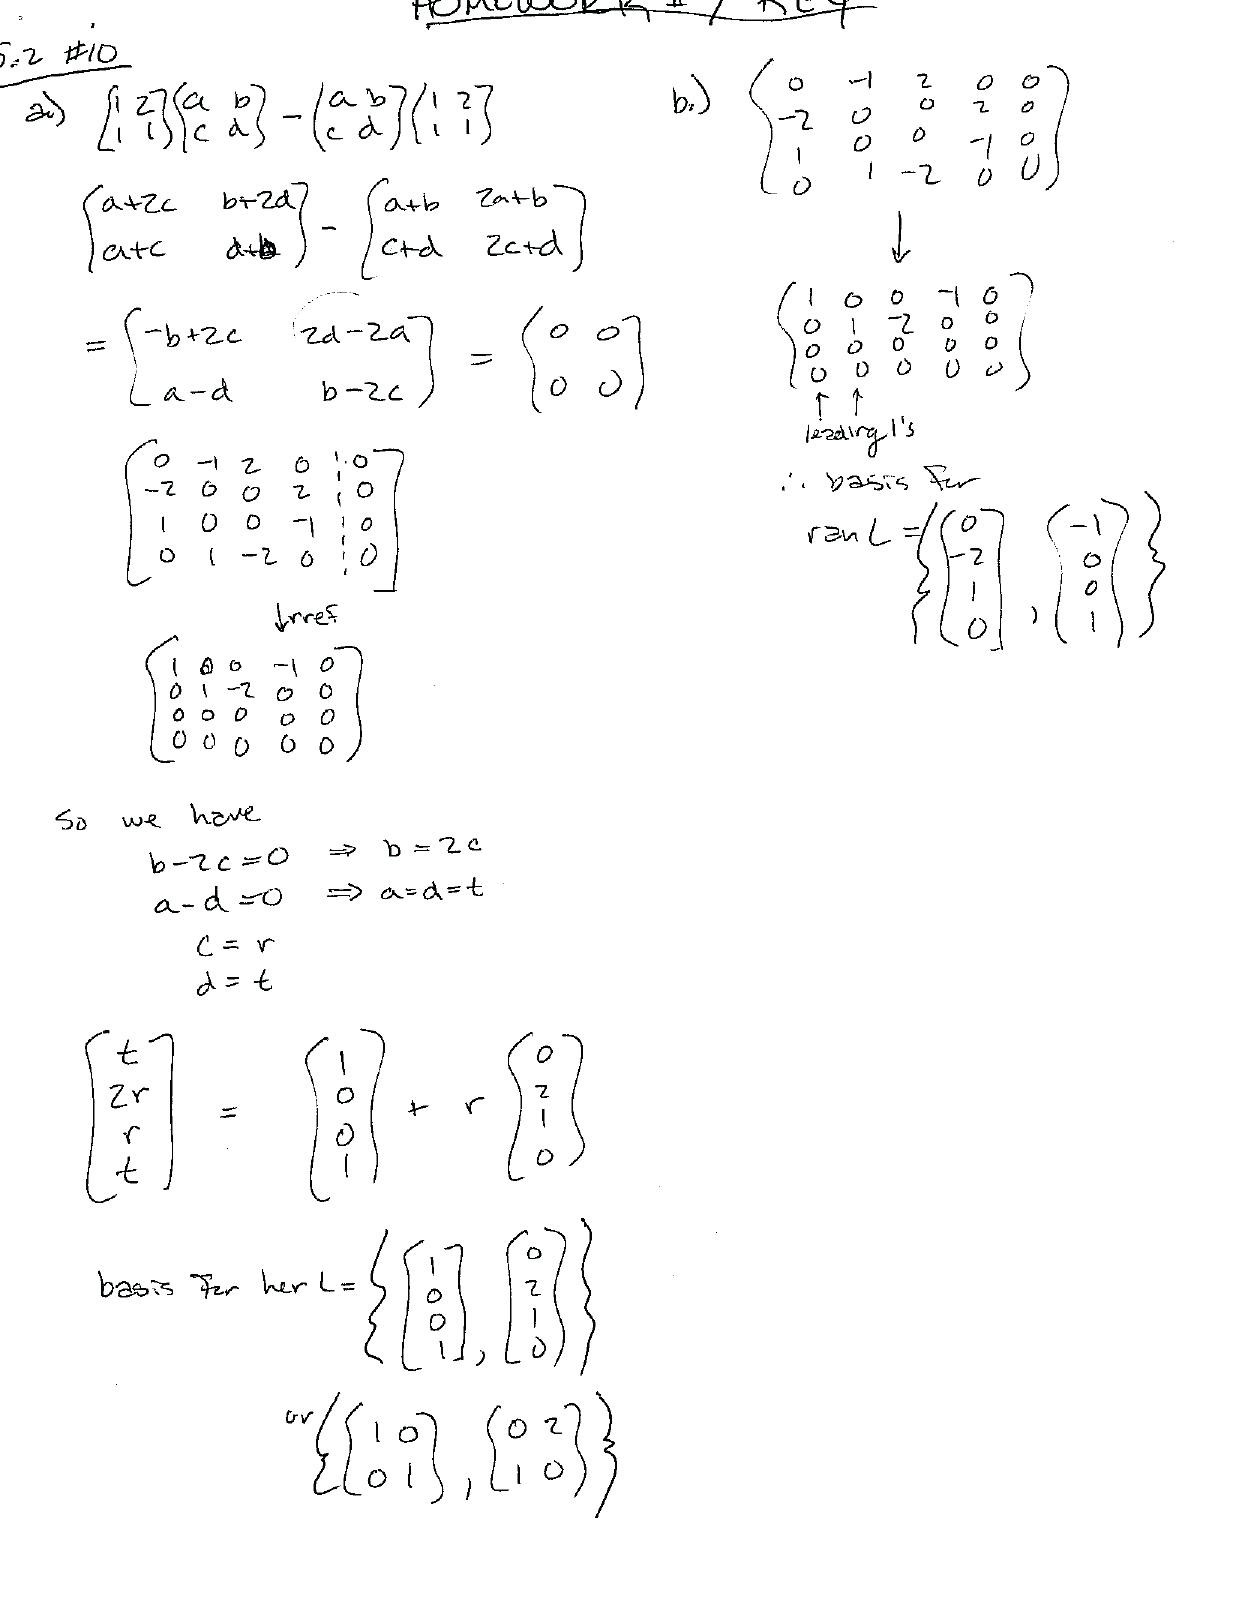 HOMEWORK # 7 KEY
5.2 #10
a.) [1 2; 1 1][a b; c d] - [a b; c d][1 2; 1 1]
[a+2c b+2d; a+c d+b] - [a+b 2a+b; c+d 2c+d]
= [-b+2c 2d-2a; a-d b-2c] = [0 0; 0 0]
0 -1 2 0 0
-2 0 0 2 0
1 0 0 -1 0
0 1 -2 0 0
↓rref
1 0 0 -1 0
0 1 -2 0 0
0 0 0 0 0
0 0 0 0 0
So we have
b-2c=0 ⇒ b=2c
a-d=0 ⇒ a=d=t
c = r
d = t
[t; 2r; r; t] = [1; 0; 0; 1] + r [0; 2; 1; 0]
basis for ker L = {[1; 0; 0; 1], [0; 2; 1; 0]}
or {[1 0; 0 1], [0 2; 1 0]}
b.)
0 -1 2 0 0
-2 0 0 2 0
1 0 0 -1 0
0 1 -2 0 0
↓
1 0 0 -1 0
0 1 -2 0 0
0 0 0 0 0
0 0 0 0 0
↑ ↑
leading 1's
∴ basis for
ran L = {[0; -2; 1; 0], [-1; 0; 0; 1]}